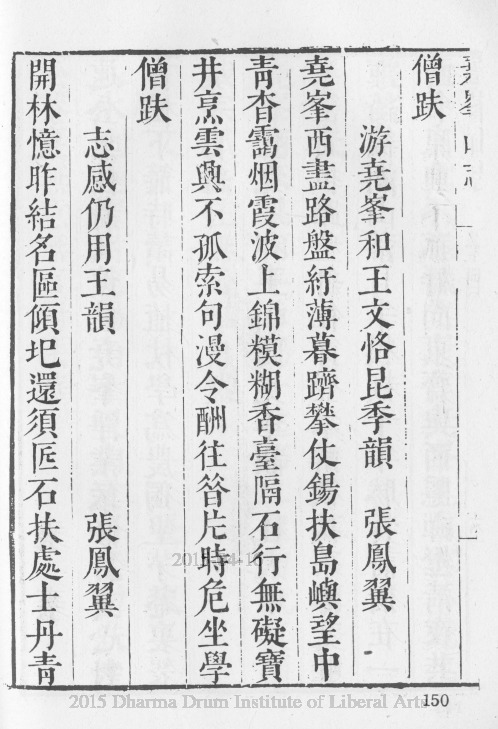 堯峯山志
僧趺
游堯峯和王文恪昆季韻 張鳳翼
堯峯西盡路盤紆薄暮躋攀仗錫扶島嶼望中
青杳靄烟霞波上錦模糊香臺隔石行無礙寶
井烹雲興不孤索句漫令酬往答片時危坐學
僧趺
志感仍用王韻 張鳳翼
開林憶昨結名區傾圯還須匠石扶處士丹青
150
2015 Dharma Drum Institute of Liberal Arts